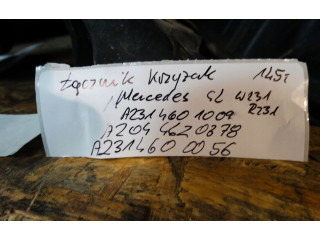 Łącznik Krzyżak 145,-
Mercedes SL W231
A231 460 1009 R231
A204 462 0878
A231 460 00 56